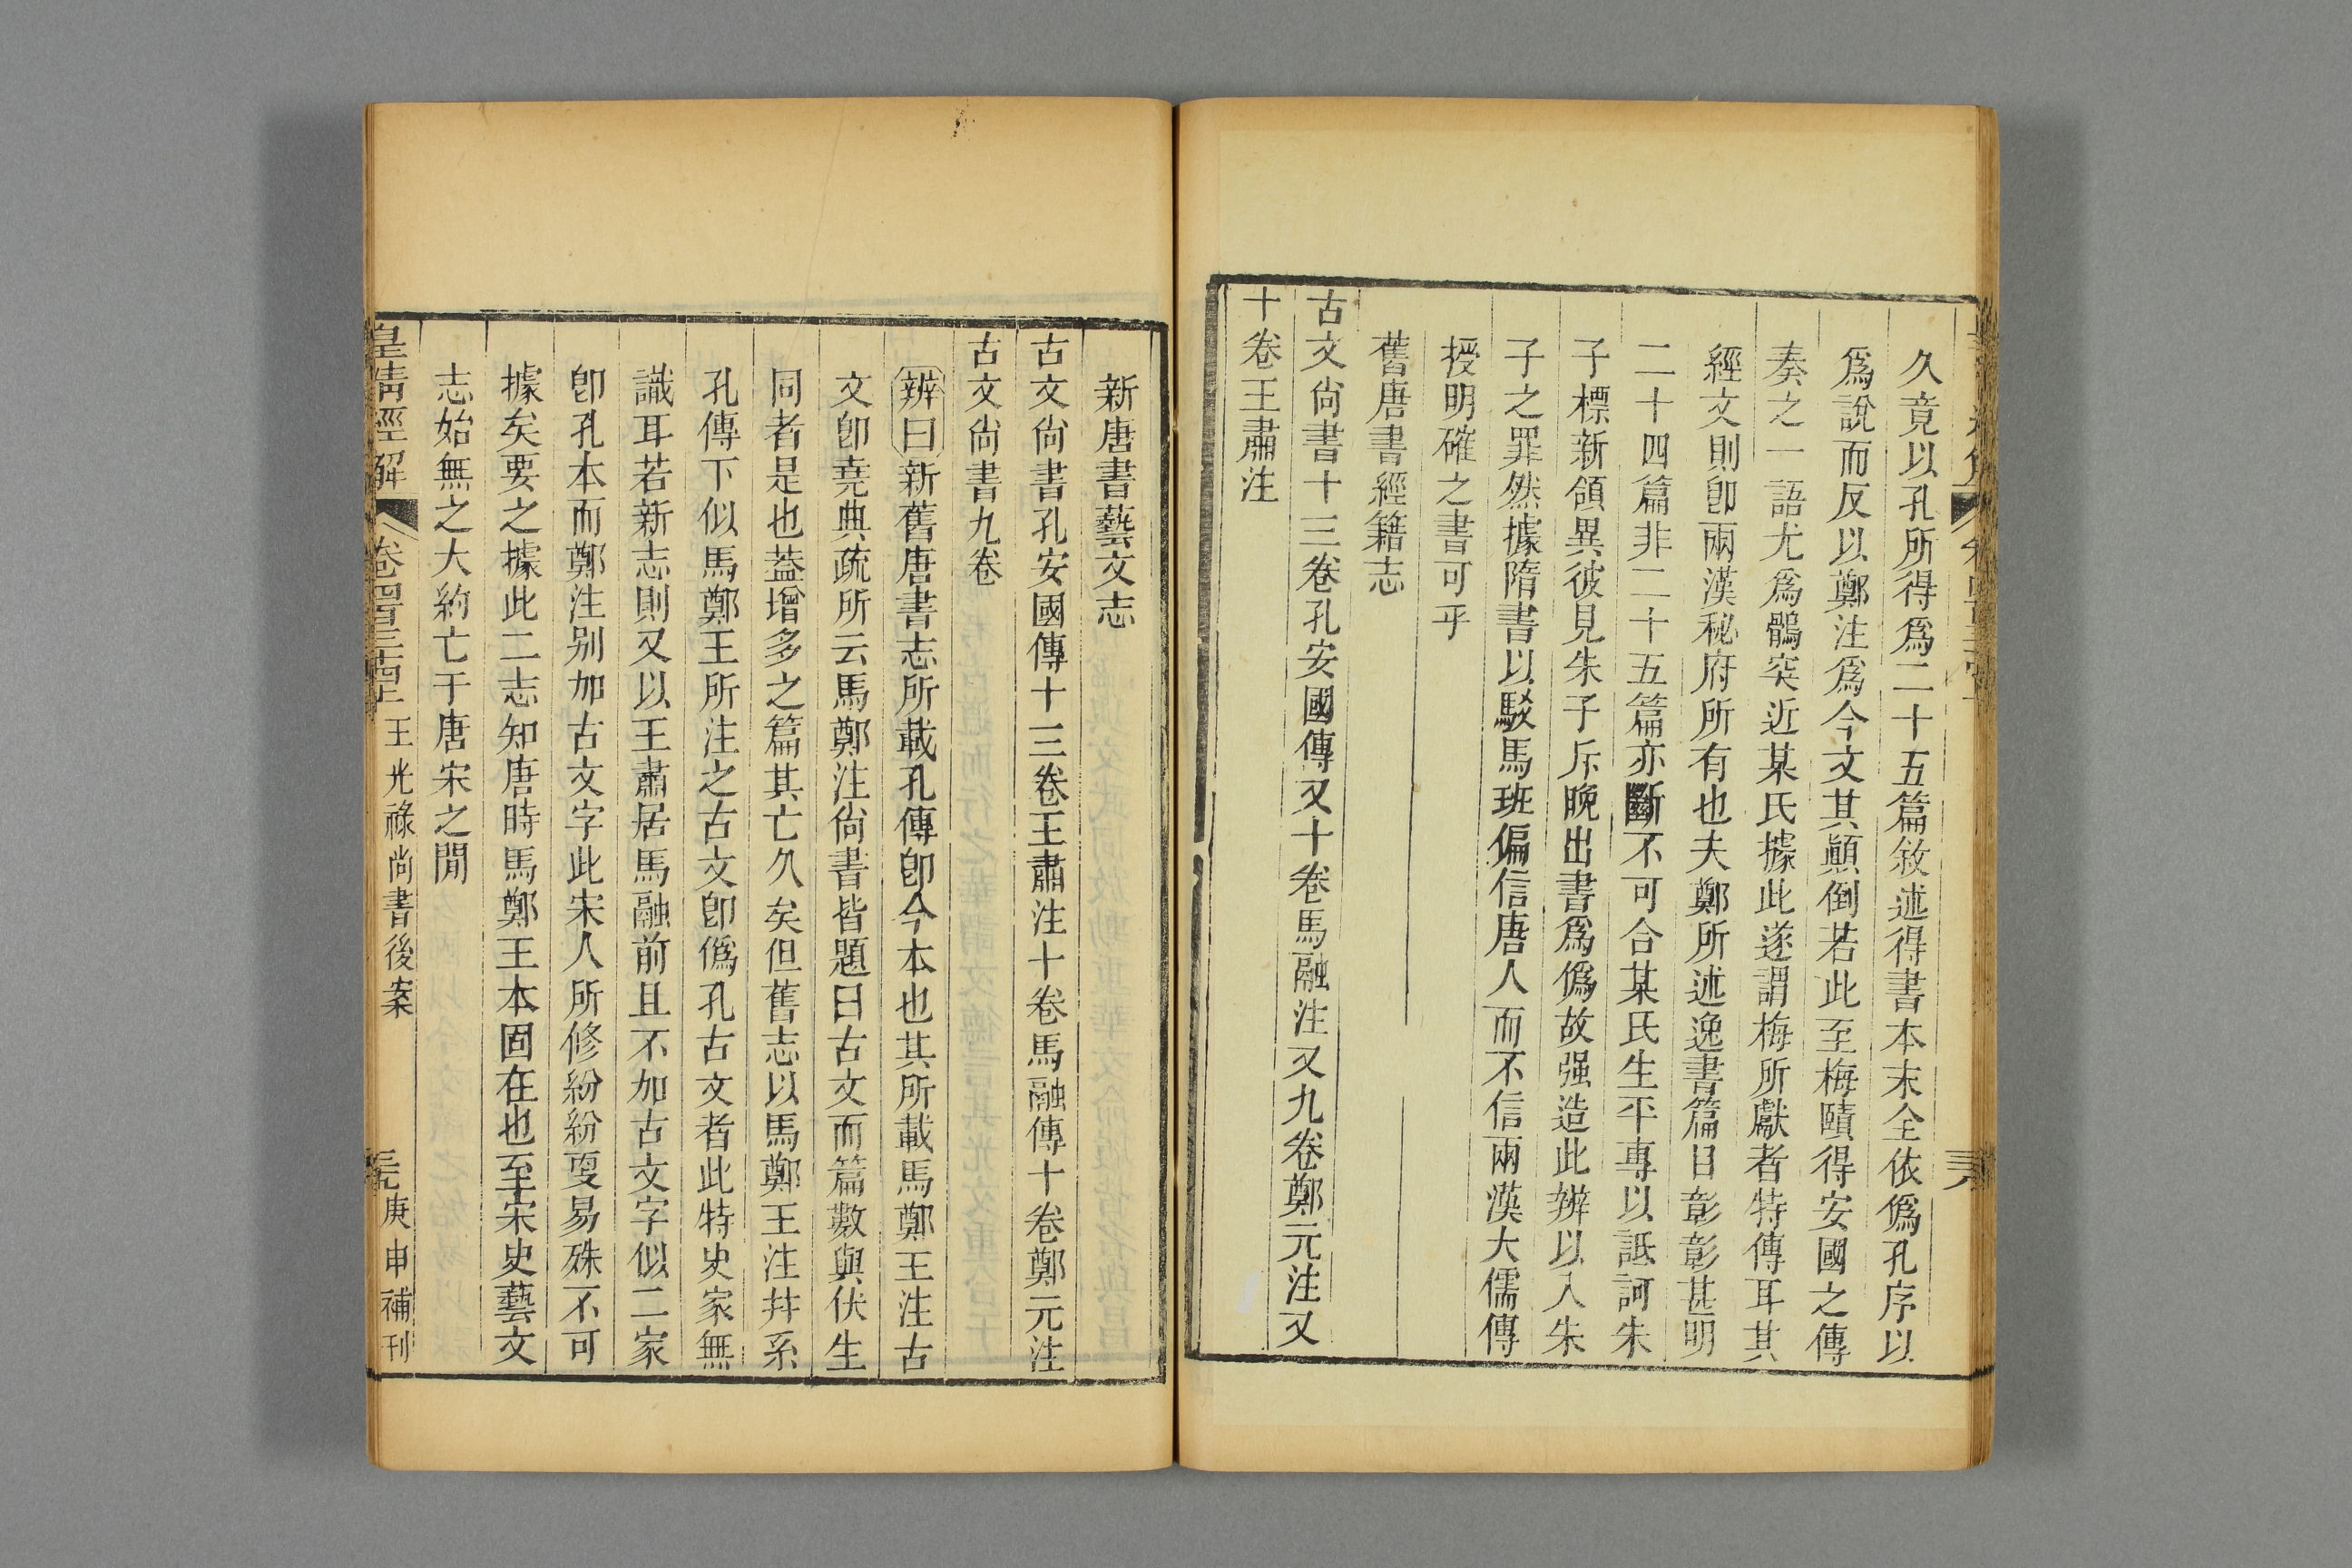 久竟以孔所得爲二十五篇敘述得書本末全依僞孔序以
爲說而反以鄭注爲今文其顚倒若此至梅賾得安國之傳
奏之一語尤爲鶻突近某氏據此遂謂梅所獻者特傳耳其
經文則卽兩漢秘府所有也夫鄭所述逸書篇目彰彰甚明
二十四篇非二十五篇亦斷不可合某氏生平專以詆訶朱
子標新領異彼見朱子斥晚出書爲僞故强造此辨以入朱
子之罪然據隋書以駁馬班偏信唐人而不信兩漢大儒傳
授明確之書可乎
舊唐書經籍志
古文尙書十三卷孔安國傳又十卷馬融注又九卷鄭元注又
十卷王肅注
新唐書藝文志
古文尙書孔安國傳十三卷王肅注十卷馬融傳十卷鄭元注
古文尙書九卷
辨曰新舊唐書志所載孔傳卽今本也其所載馬鄭王注古
文卽堯典疏所云馬鄭注尙書皆題曰古文而篇數與伏生
同者是也蓋增多之篇其亡久矣但舊志以馬鄭王注幷系
孔傳下似馬鄭王所注之古文卽僞孔古文者此特史家無
識耳若新志則又以王肅居馬融前且不加古文字似二家
卽孔本而鄭注別加古文字此宋人所修紛紛耎易殊不可
據矣要之據此二志知唐時馬鄭王本固在也至宋史藝文
志始無之大約亡于唐宋之閒
皇淸經解 卷四百三十四上 王光祿尙書後案 庚申補刊